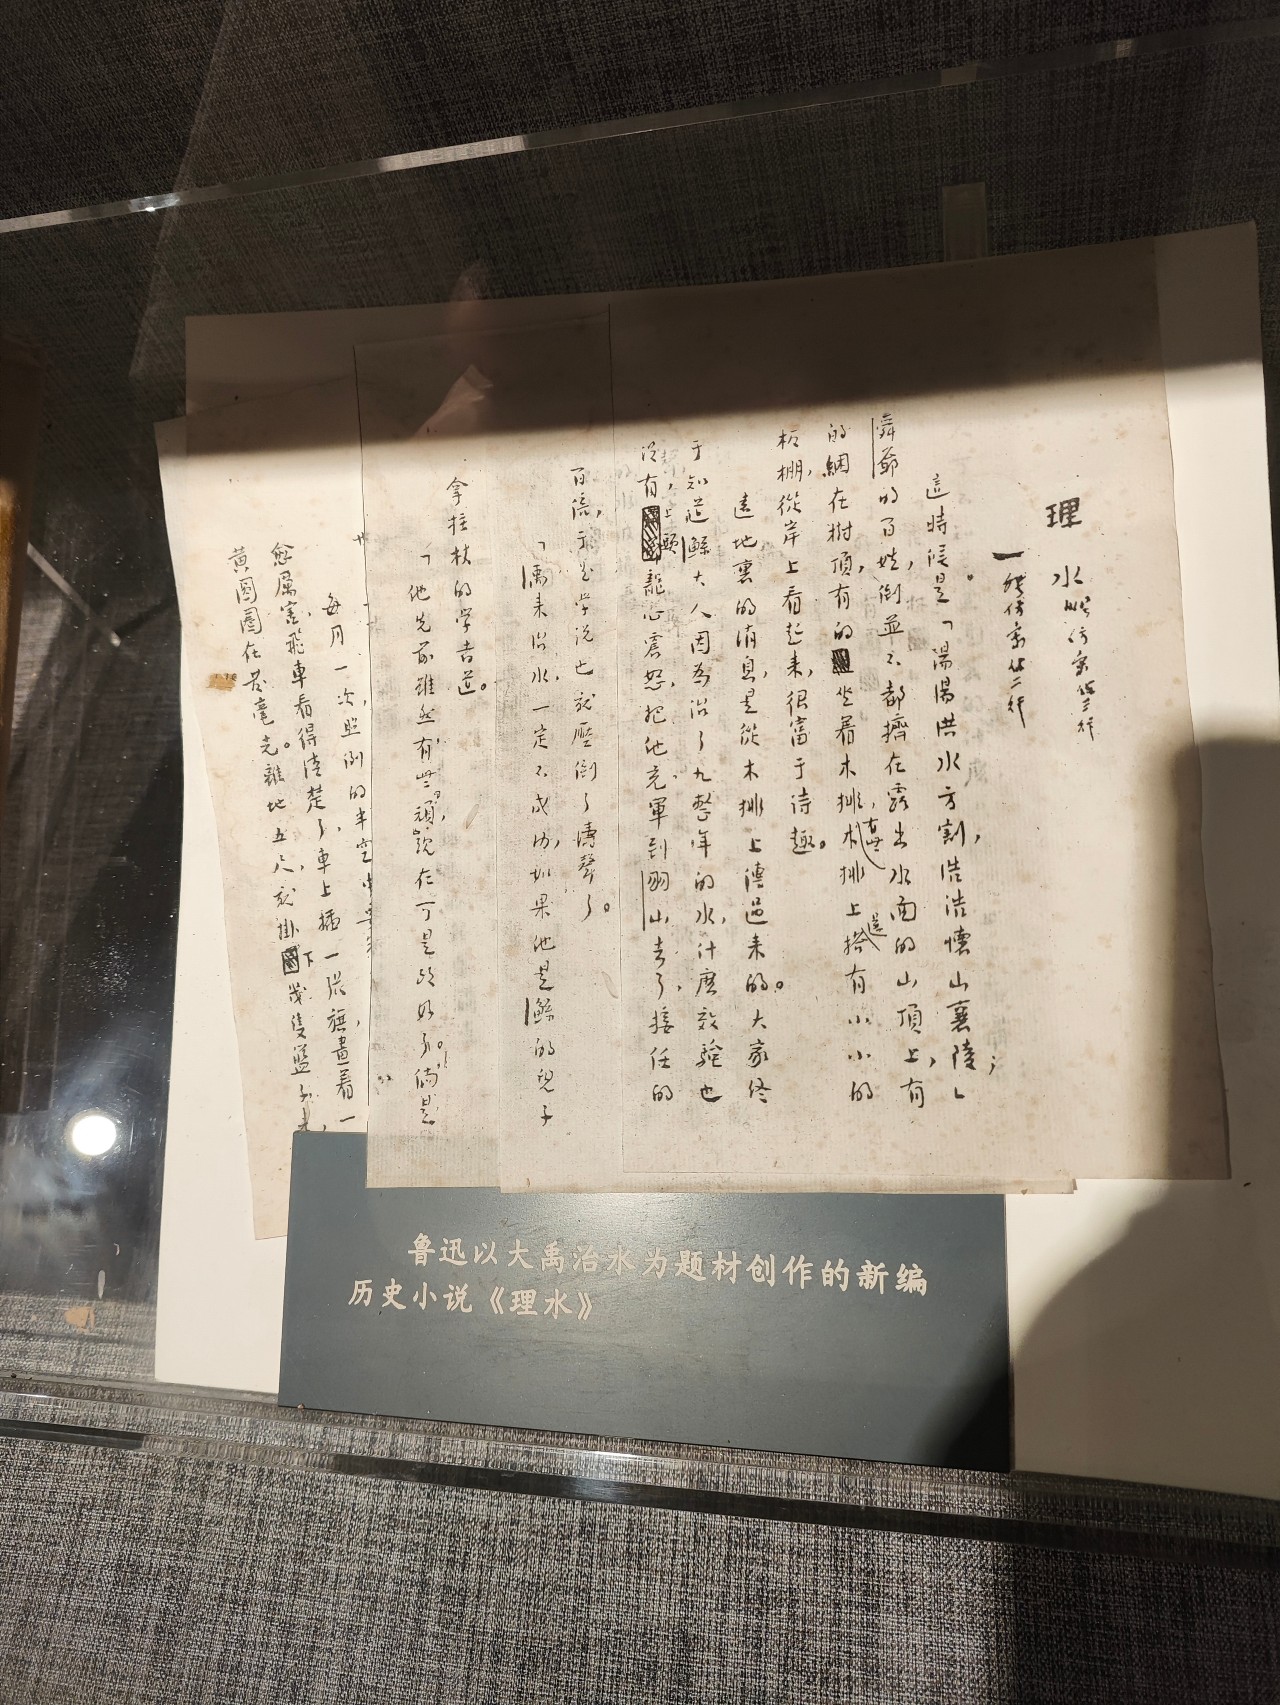 理水
一
這時候是「湯湯洪水方割，浩浩懷山襄陵」；
舜爺的百姓，倒並不都擠在露出水面的山頂上，有
的綑在樹頂，有的坐着木排，有些木排上還搭有小小的
板棚，從岸上看起來，很富于詩趣。
遠地裏的消息，是從木排上傳過來的。大家終
于知道鯀大人因為治了九整年的水，什麽效驗也
沒有，上頭龍心震怒，把他充軍到羽山去了，接任的
百流，于是学说也就壓倒了濤聲了。
「禹来治水，一定不成功，如果他是鯀的兒子
拿拄杖的学者道。
「他先前雖然有些頑
每月一次照例的半空中
愈厲害，飛車看得清楚了，車上插一張旗，畫着一
黃圓圈在發毫光。離地五尺，就掛下幾隻籃子来，
鲁迅以大禹治水为题材创作的新编
历史小说《理水》